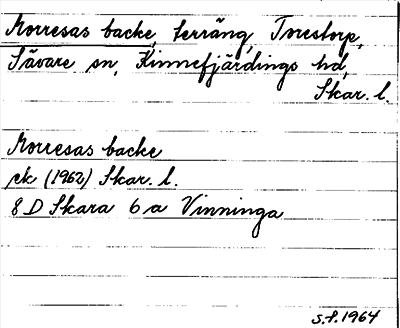 Norresas backe, terräng, Torestorp,
Sävare sn, Kinnefjärdings hd,
Skar. l.
Norresas backe
ek (1962) Skar. l.
8 D Skara 6 a Vinninga
S.P. 1964